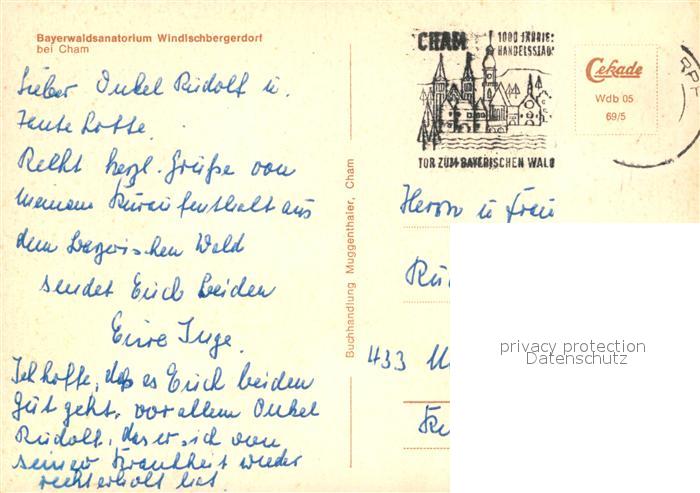 Bayerwaldsanatorium Windischbergerdorf
bei Cham
Lieber Onkel Rudolf u.
Tante Lotte.
Recht herzl. Grüße von
meinem Kuraufenthalt aus
dem bayerischen Wald
sendet Euch beiden
Eure Inge.
Ich hoffe, daß es Euch beiden
gut geht, vor allem Onkel
Rudolf, das er sich von
seiner Krankheit wieder
recht erholt hat.
Buchhandlung Muggenthaler, Cham
CHAM
1000 JÄHRIGE
HANDELSSTADT
TOR ZUM BAYERISCHEN WALD
Cekade
Wdb 05
69/5
Herrn u Frau
433
privacy protection
Datenschutz